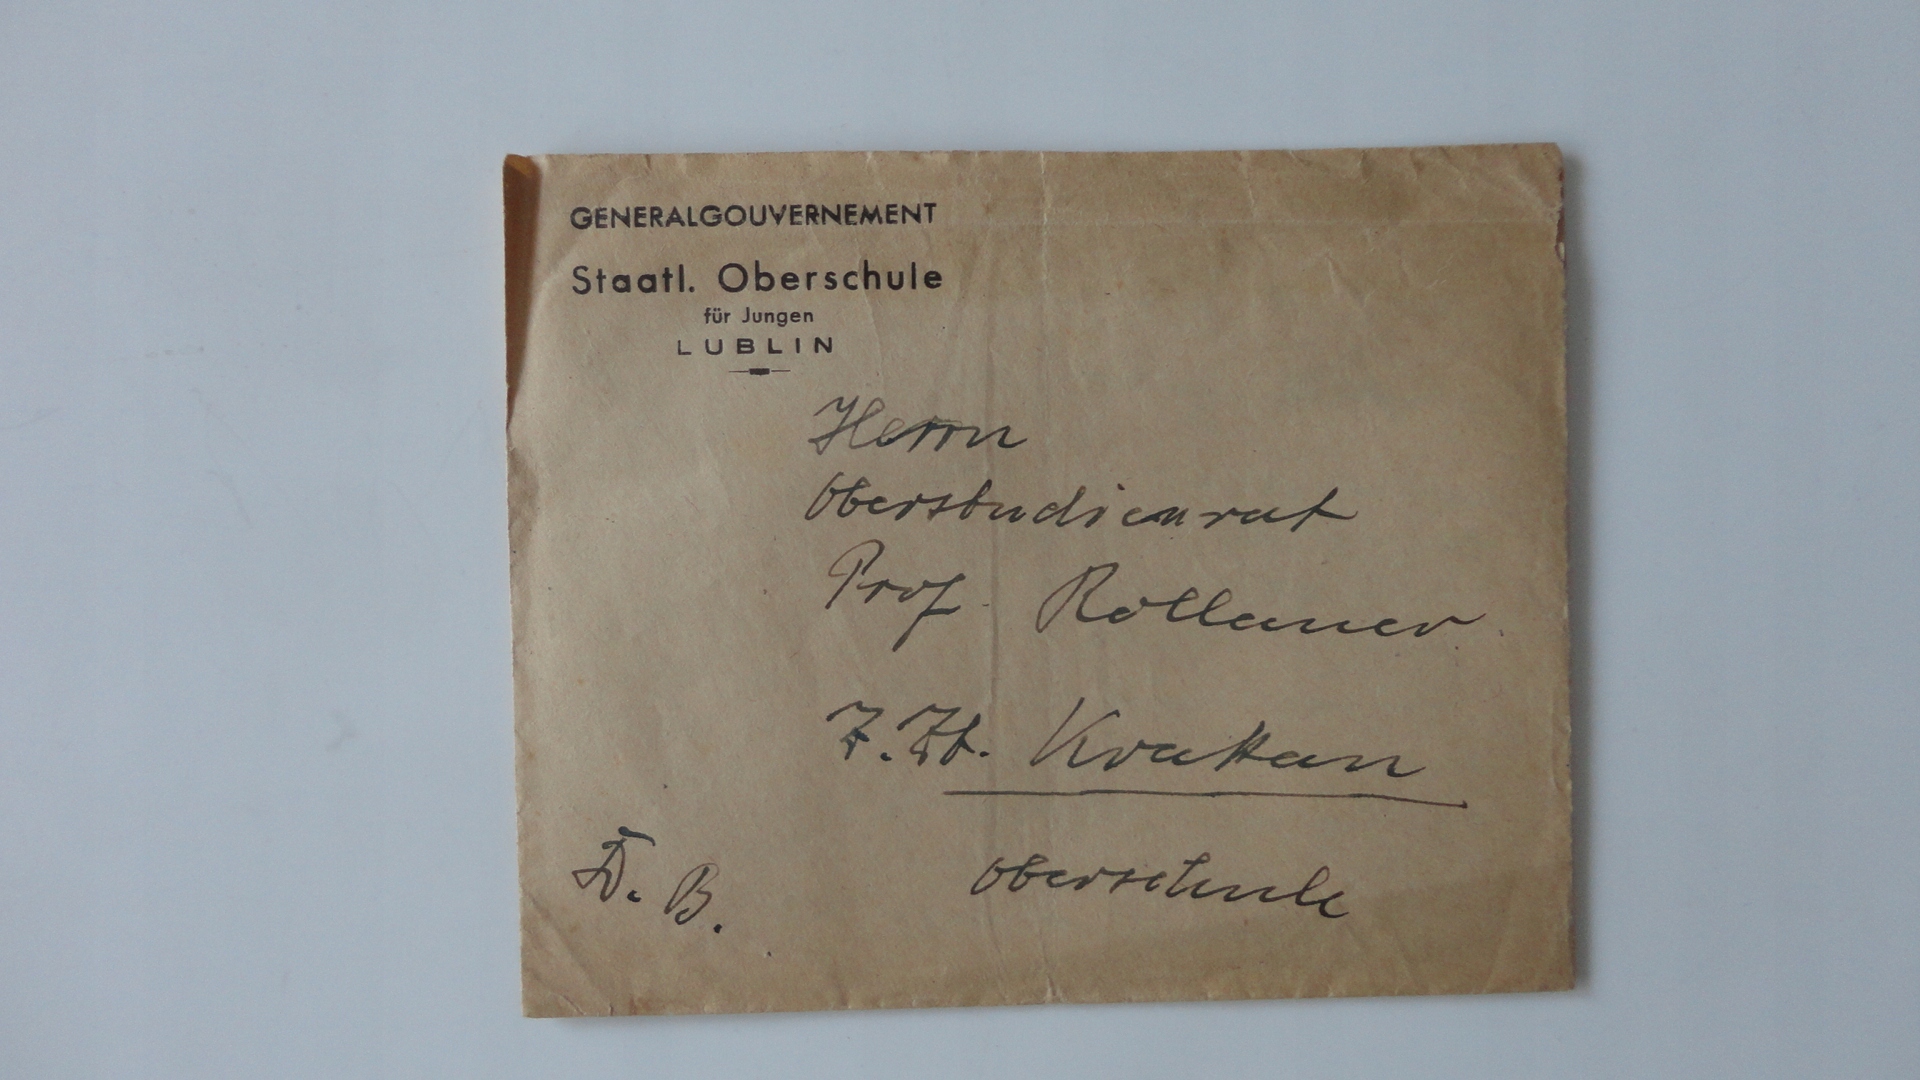 GENERALGOUVERNEMENT
Staatl. Oberschule
für Jungen
LUBLIN
Herrn
Oberstudienrat
Prof. Rollauer
Z. Zt. Krakau
Oberschule
D. B.